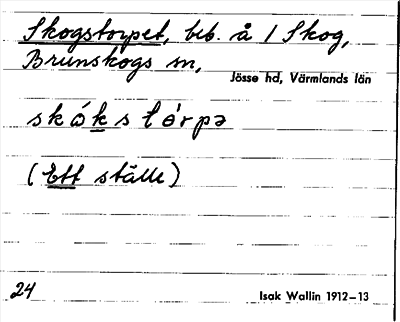 Skogstorpet, beb. å 1 Skog,
Brunskogs sn,
Jösse hd, Värmlands län
skókstòrpə
(Ett ställe)
24
Isak Wallin 1912-13